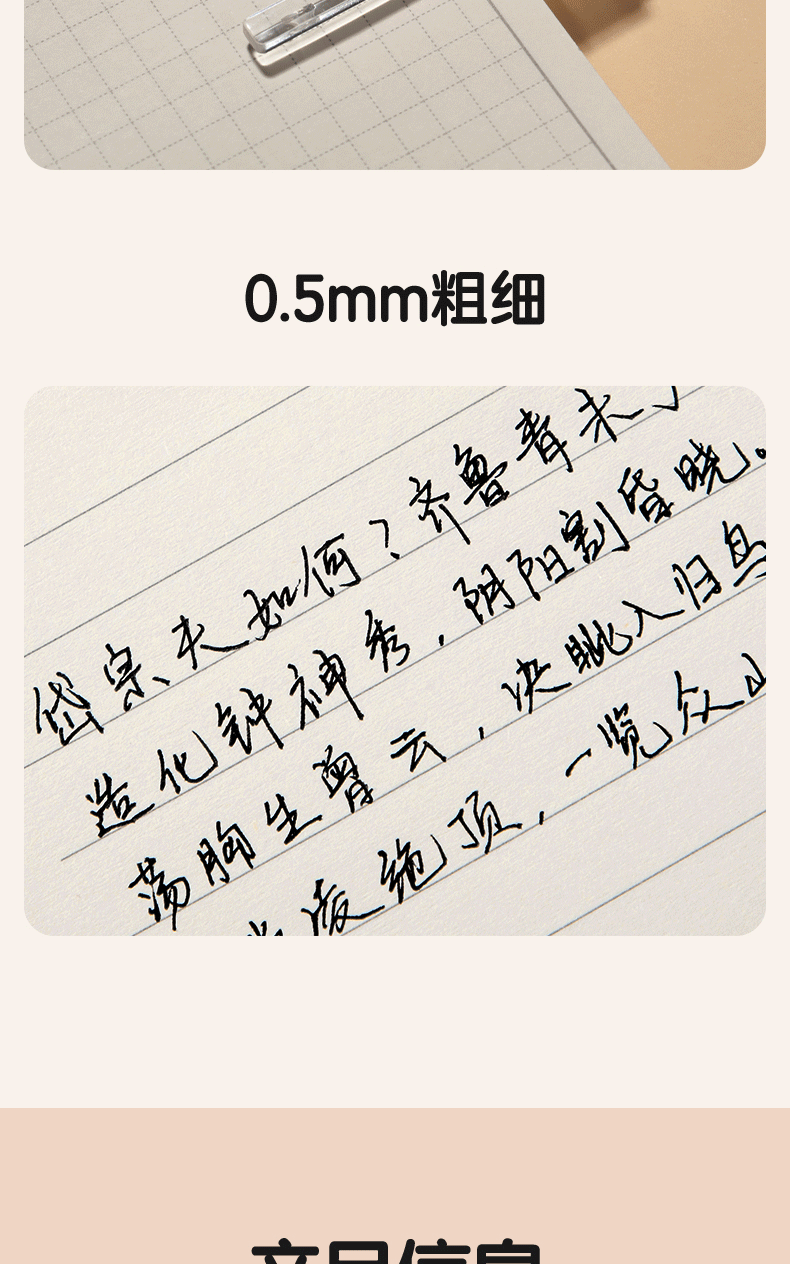 0.5mm粗细
岱宗夫如何？齐鲁青未了
造化钟神秀，阴阳割昏晓。
荡胸生曾云，决眦入归鸟
凌绝顶，一览众山
产品信息